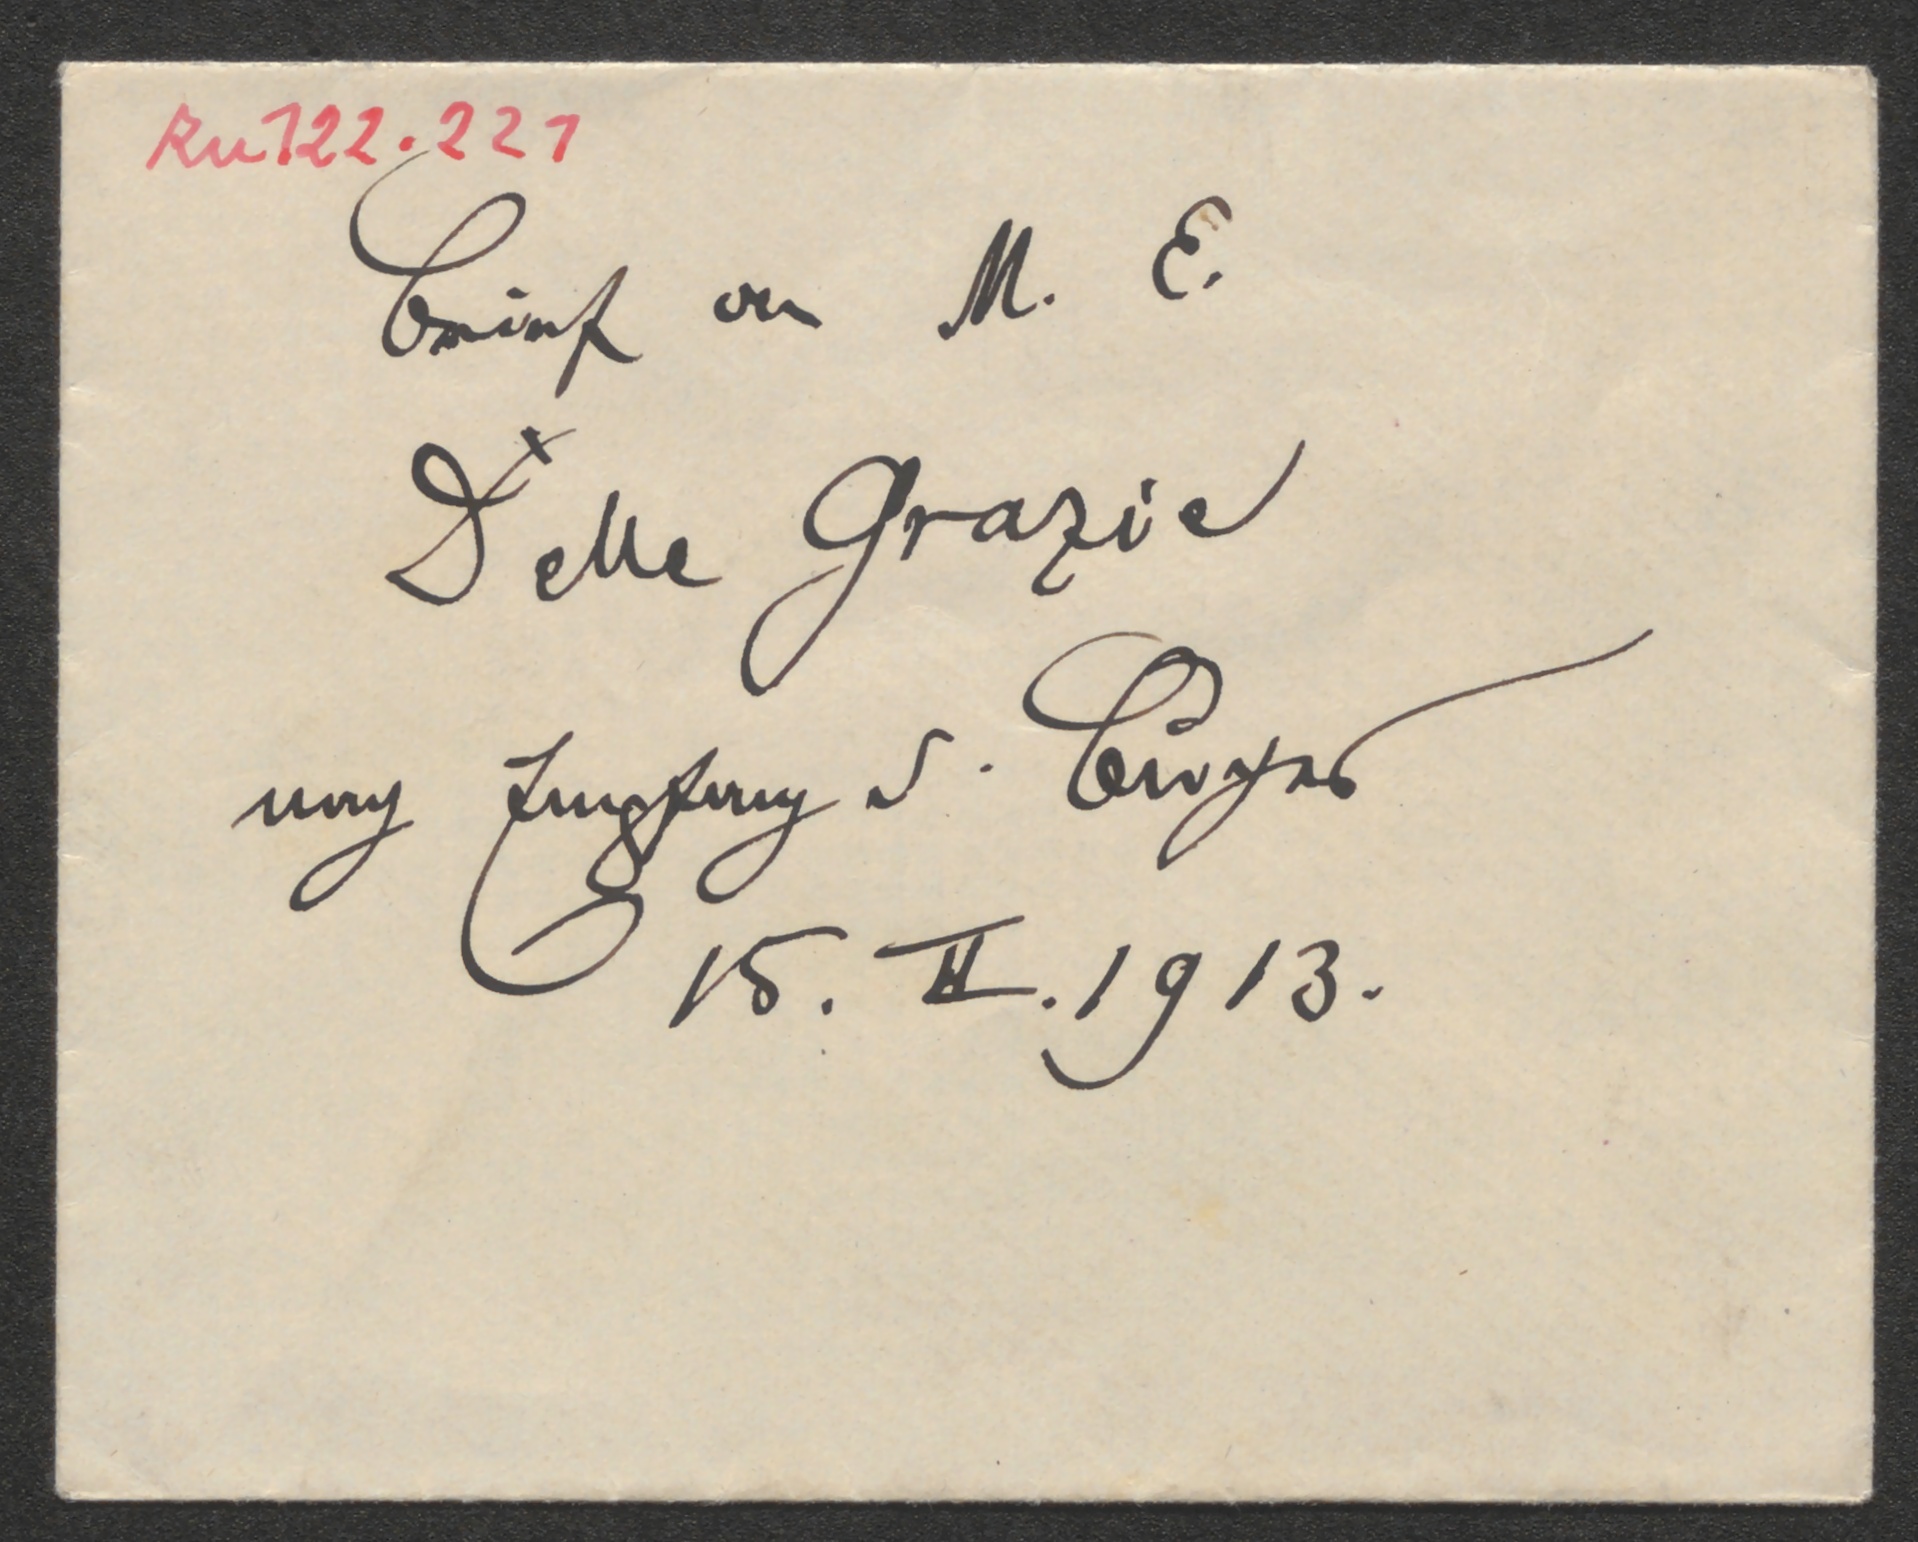 Ru 122.221
Brief an M. E.
Delle Grazie
nach Empfang d. Buches
15. II. 1913.